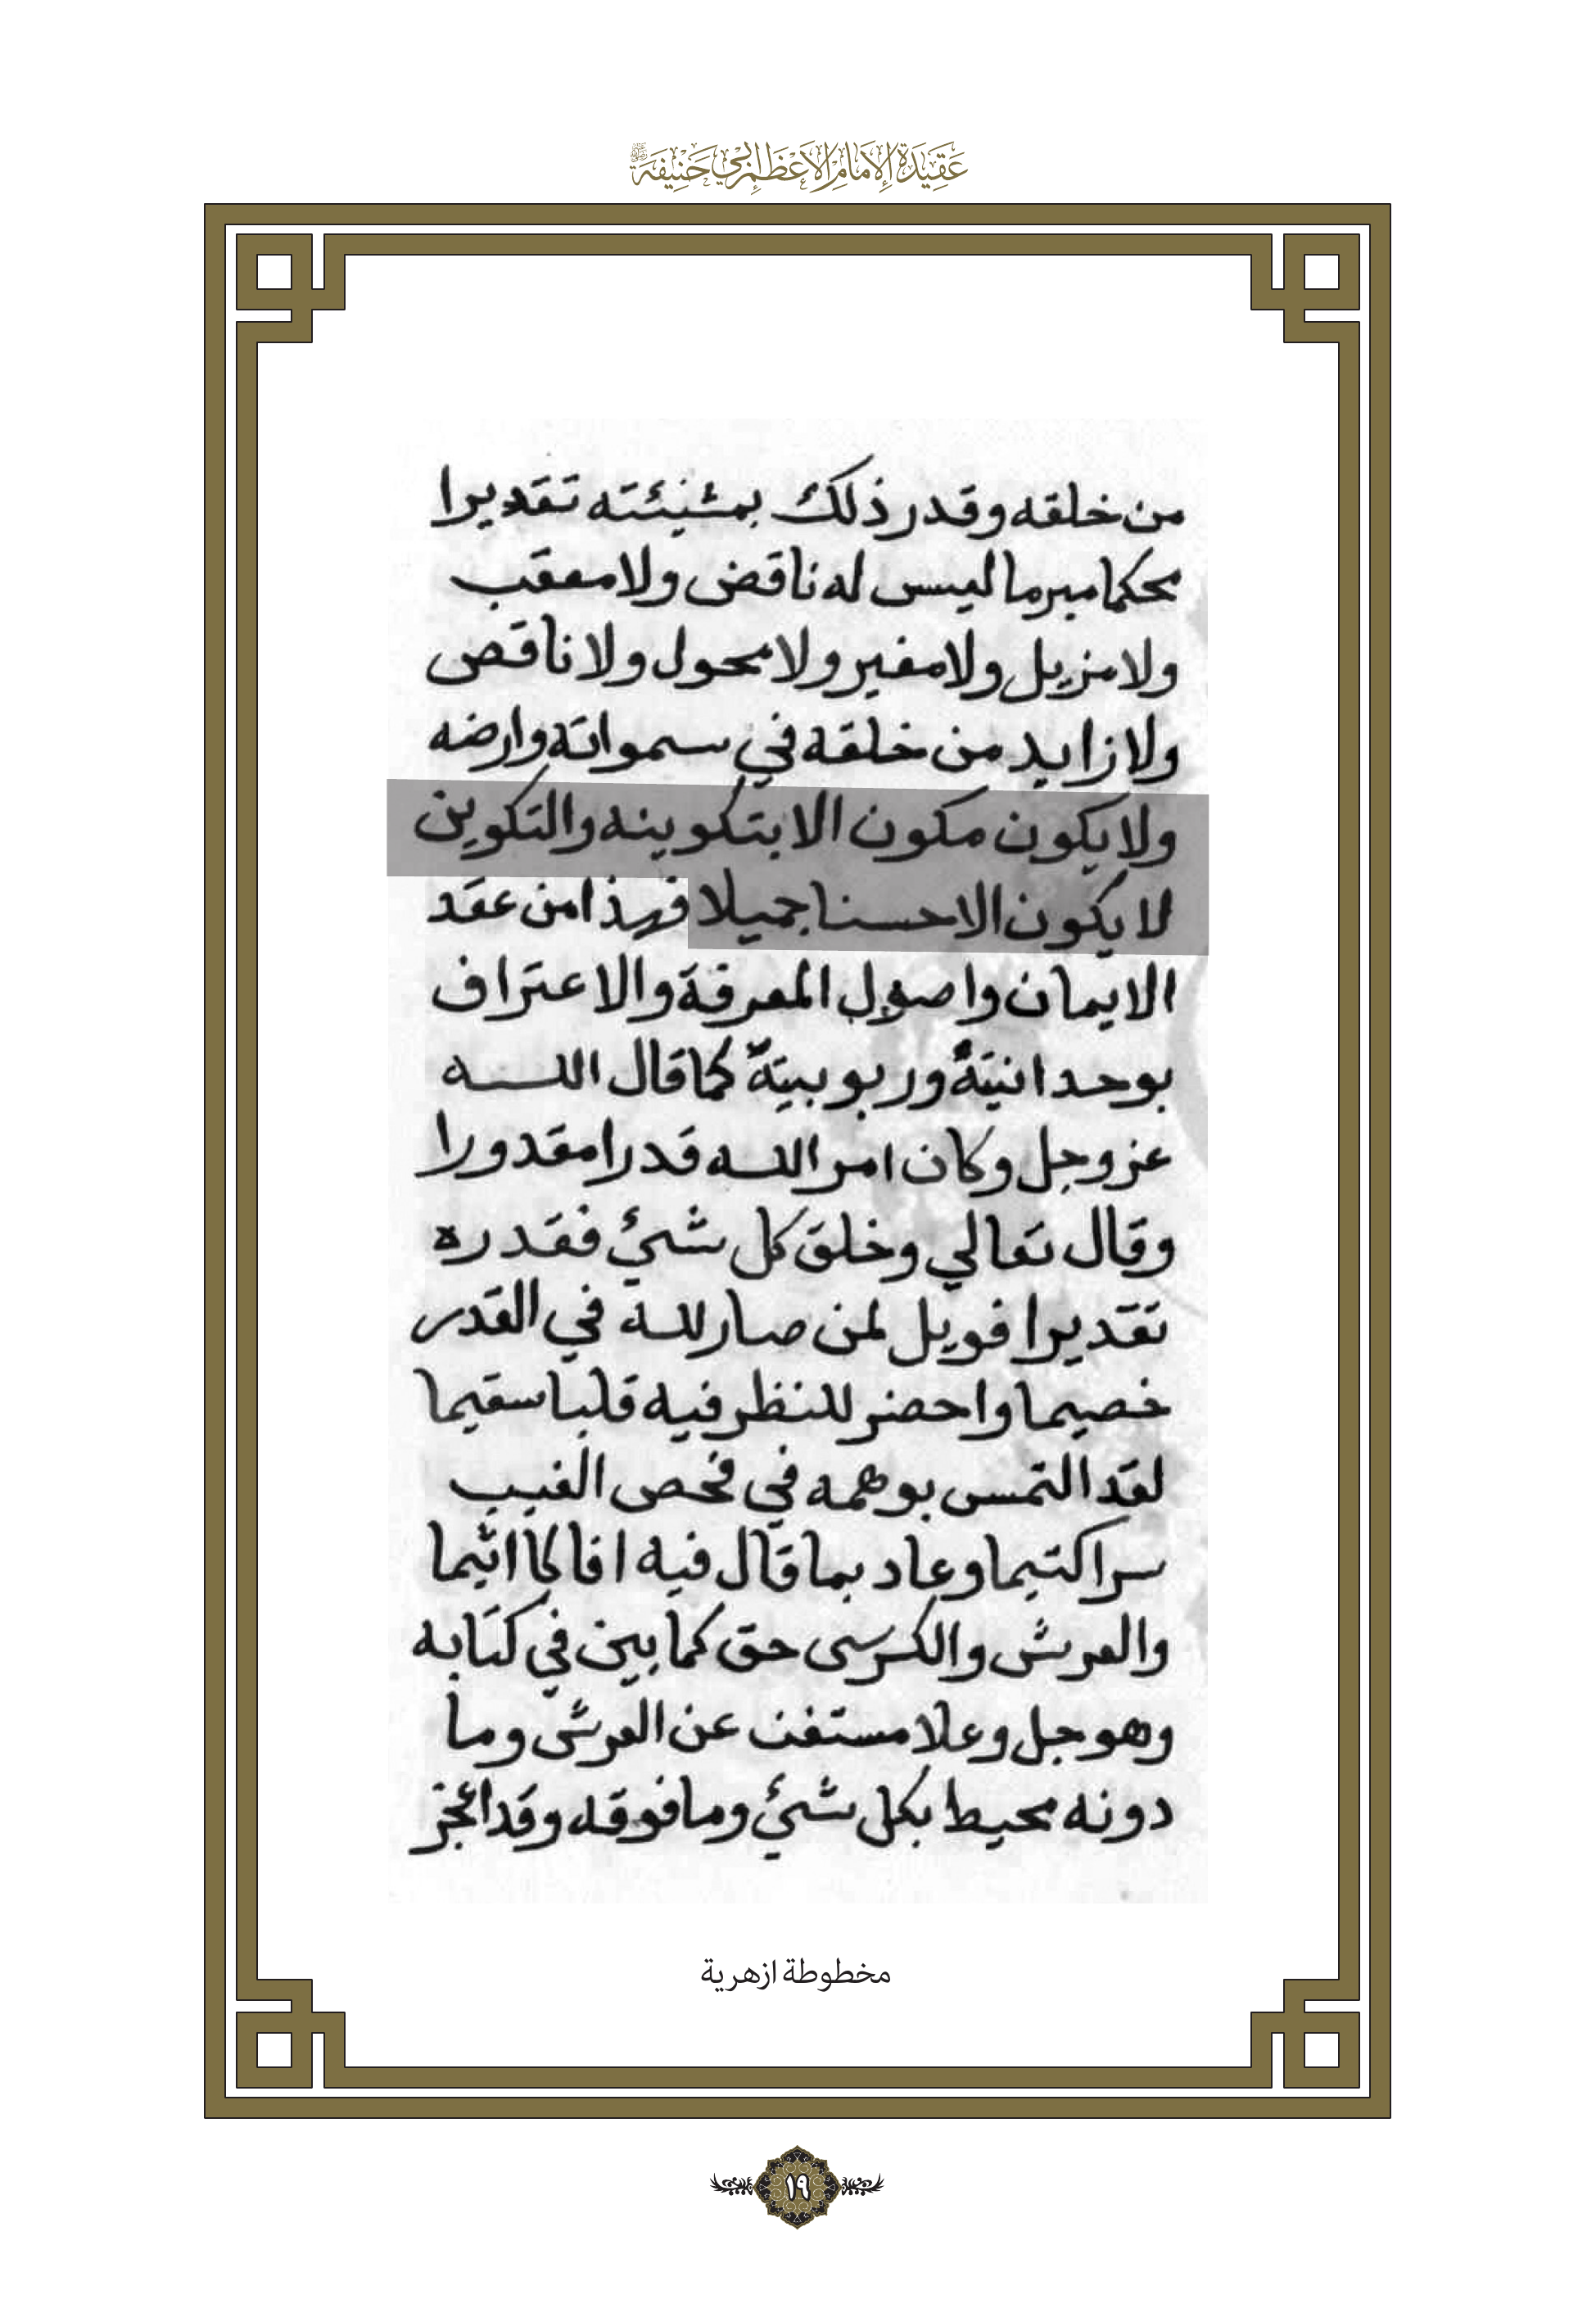 عَقِيدَةُ الإِمَامِ الأَعْظَمِ أَبِي حَنِيفَةَ
من خلقه وقدر ذلك بمشيئته تقديرا
محكما مبرما ليس له ناقض ولا معقب
ولا مزيل ولا مغير ولا محول ولا ناقص
ولا زايد من خلقه في سمواته وارضه
ولا يكون مكون الا بتكوينه والتكوين
لا يكون الا حسنا جميلا فهذا من عقد
الايمان واصول المعرفة والاعتراف
بوحدانيته وربوبيته كما قال الله
عز وجل وكان امر الله قدرا مقدورا
وقال تعالي وخلق كل شيئ فقدره
تقديرا فويل لمن صار لله في القدر
خصيما واحضر للنظر فيه قلبا سقيما
لقد التمس بوهمه في فحص الغيب
سرا كتيما وعاد بما قال فيه افاكا اثيما
والعرش والكرسى حق كما بين في كتابه
وهو جل وعلا مستغن عن العرش وما
دونه محيط بكل شيئ وما فوقه وقد اعجز
مخطوطة ازهرية
١٩